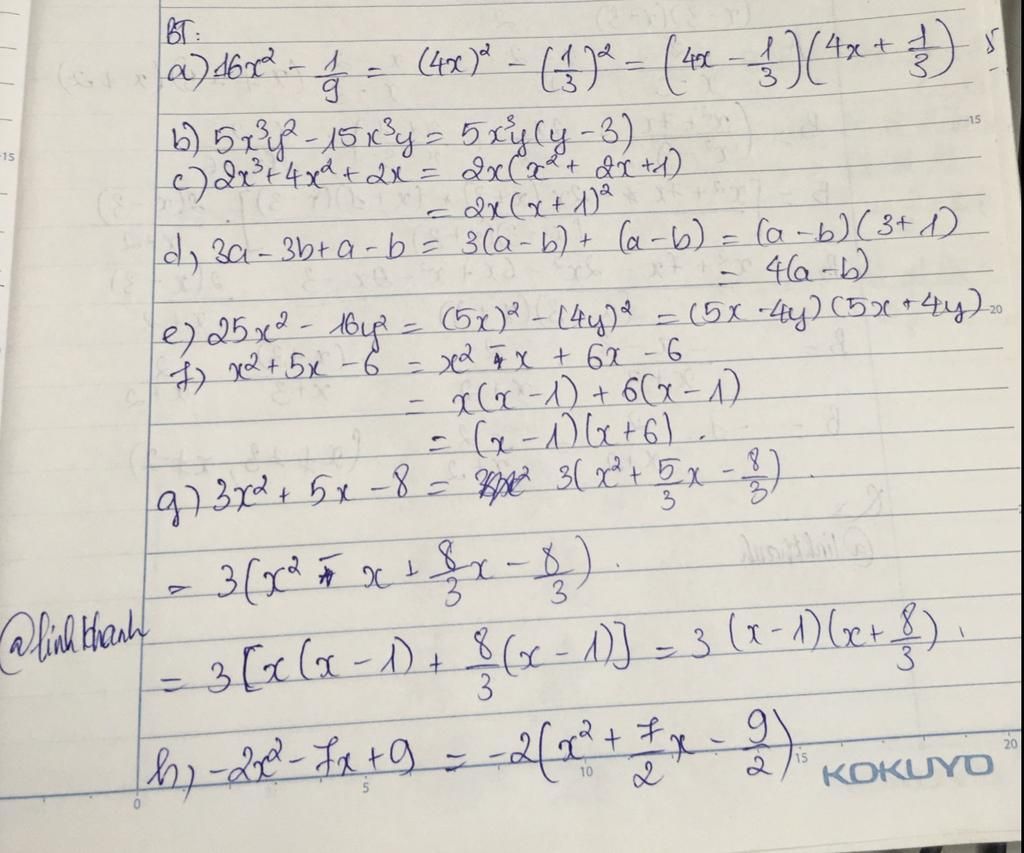 BT:
a) 16x² - 1/9 = (4x)² - (1/3)² = (4x - 1/3)(4x + 1/3)
b) 5x³y² - 15x³y = 5x³y(y - 3)
15
15
c) 2x³ + 4x² + 2x = 2x(x² + 2x + 1)
= 2x(x + 1)²
d) 3a - 3b + a - b = 3(a - b) + (a - b) = (a - b)(3 + 1)
= 4(a - b)
e) 25x² - 16y² = (5x)² - (4y)² = (5x - 4y)(5x + 4y)
20
f) x² + 5x - 6 = x² - x + 6x - 6
= x(x - 1) + 6(x - 1)
= (x - 1)(x + 6).
g) 3x² + 5x - 8 = 3(x² + 5/3x - 8/3).
= 3(x² - x + 8/3x - 8/3).
@linhkhanh
= 3[x(x - 1) + 8/3(x - 1)] = 3(x - 1)(x + 8/3).
h) -2x² - 7x + 9 = -2(x² + 7/2x - 9/2)
0 5 10 15 20
KOKUYO